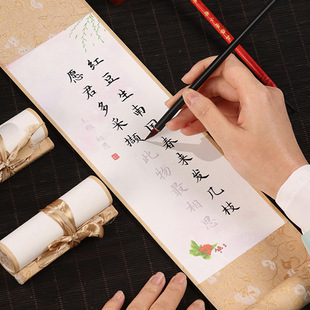 红豆生南国春来发几枝
愿君多采撷此物最相思